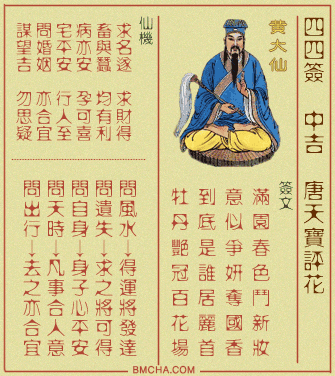 四四簽 中吉 唐天寶評花
黃大仙
簽文
滿園春色鬥新妝
意似爭妍奪國香
到底是誰居麗首
牡丹艷冠百花場
仙機
求名遂 求財得
畜與蠶 均有利
病亦安 孕可喜
宅平安 行人至
問婚姻 亦合宜
謀望吉 勿思疑
問風水→得運將發達
問遺失→求之將可得
問自身→身子心平安
問天時→凡事合人意
問出行→去之亦合宜
BMCHA.COM